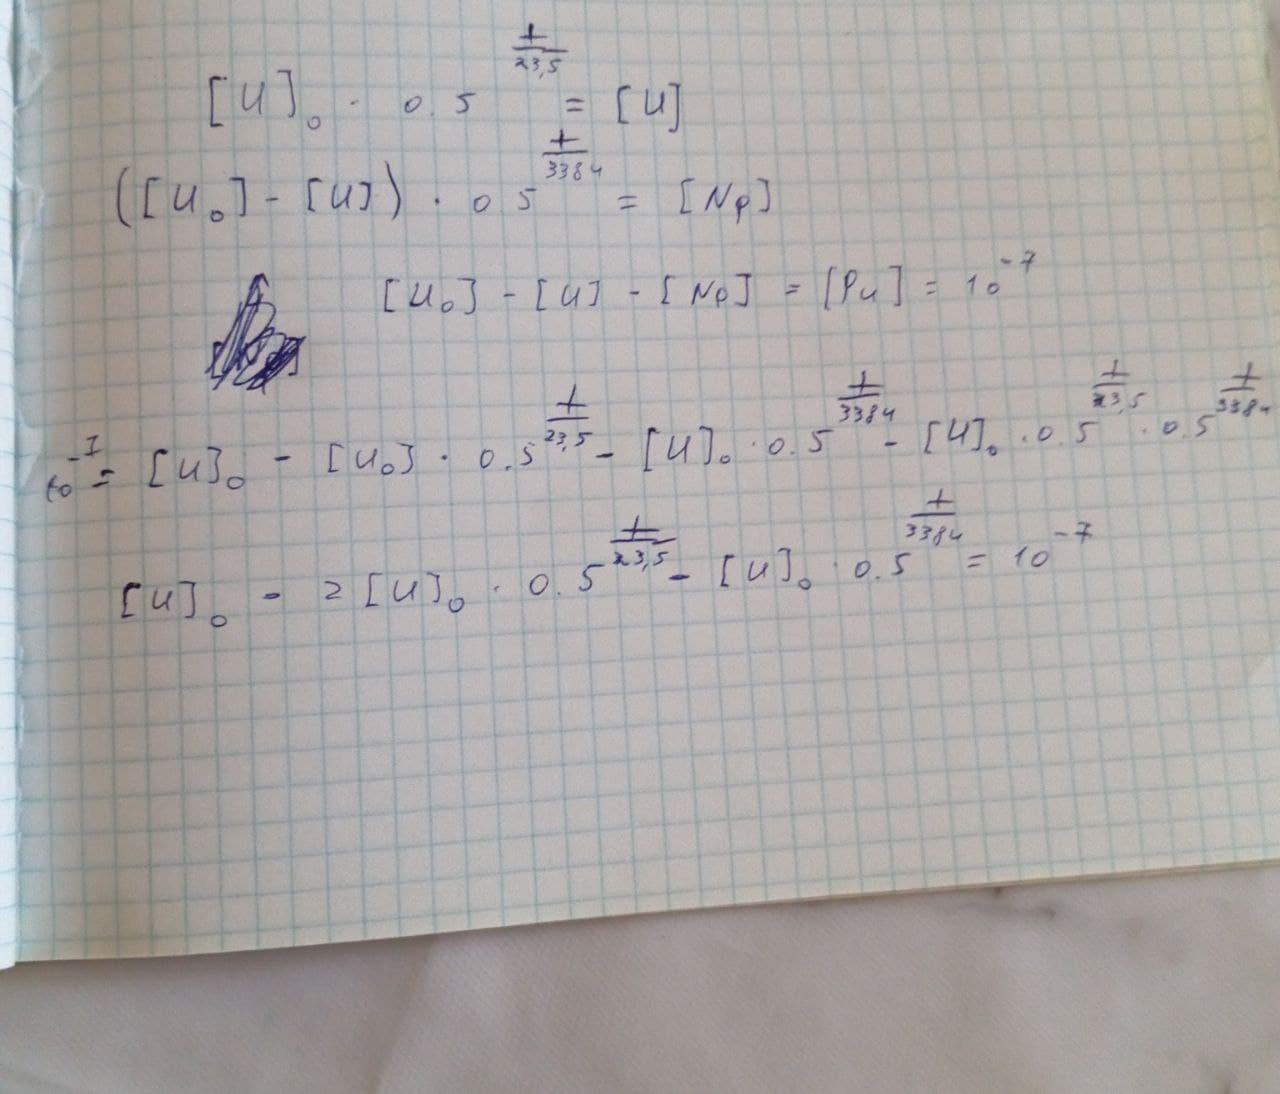 [U]₀ · 0.5^(t/23,5) = [U]
([U₀] - [U]) · 0 5^(t/3384) = [Np]
[U₀] - [U] - [Np] = [Pu] = 10⁻⁷
10⁻⁷ = [U]₀ - [U₀] · 0.5^(t/23,5) - [U]₀ · 0.5^(t/3384) - [U]₀ · 0.5^(t/23,5) · 0.5^(t/3384)
[U]₀ - 2[U]₀ · 0.5^(t/23,5) - [U]₀ · 0.5^(t/3384) = 10⁻⁷